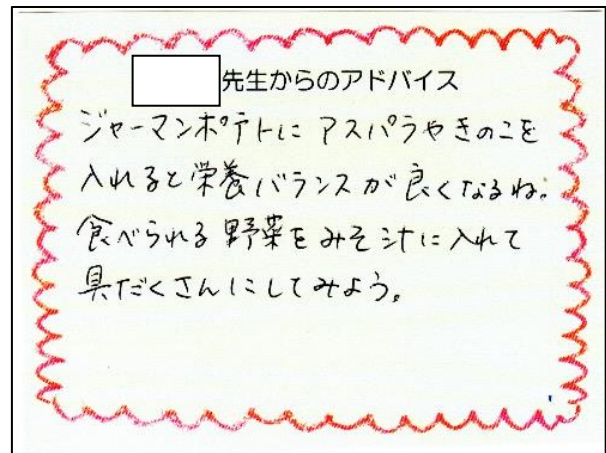 先生からのアドバイス
ジャーマンポテトにアスパラやきのこを
入れると栄養バランスが良くなるね。
食べられる野菜をみそ汁に入れて
具だくさんにしてみよう。